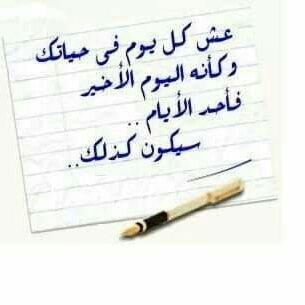 عش كل يوم في حياتك
وكأنه اليوم الأخير
فأحد الأيام ..
سيكون كذلك..